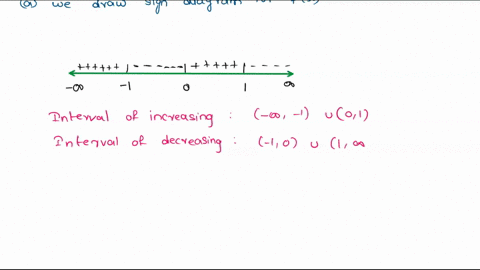 (a) we draw sign diagram for
++++++ ------- +++++ ----
-∞ -1 0 1 ∞
Interval of increasing : (-∞, -1) ∪ (0,1)
Interval of decreasing : (-1, 0) ∪ (1, ∞